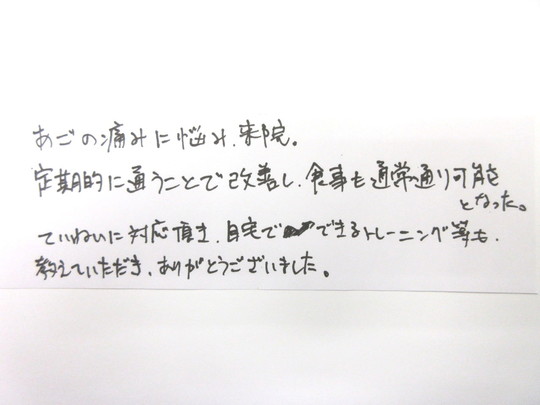 あごの痛みに悩み、来院。
定期的に通うことで改善し、食事も通常通り可能
となった。
ていねいに対応頂き、自宅でできるトレーニング等も、
教えていただき、ありがとうございました。